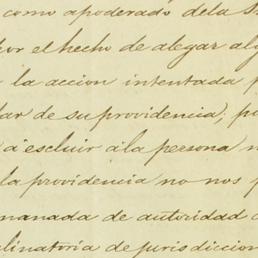 como apoderado dela S
por el hecho de alegar alg
la accion intentada p
lar de su providencia; p
a escluir á la persona n
la providencia no nos p
manada de autoridad c
linatoria de jurisdiccion